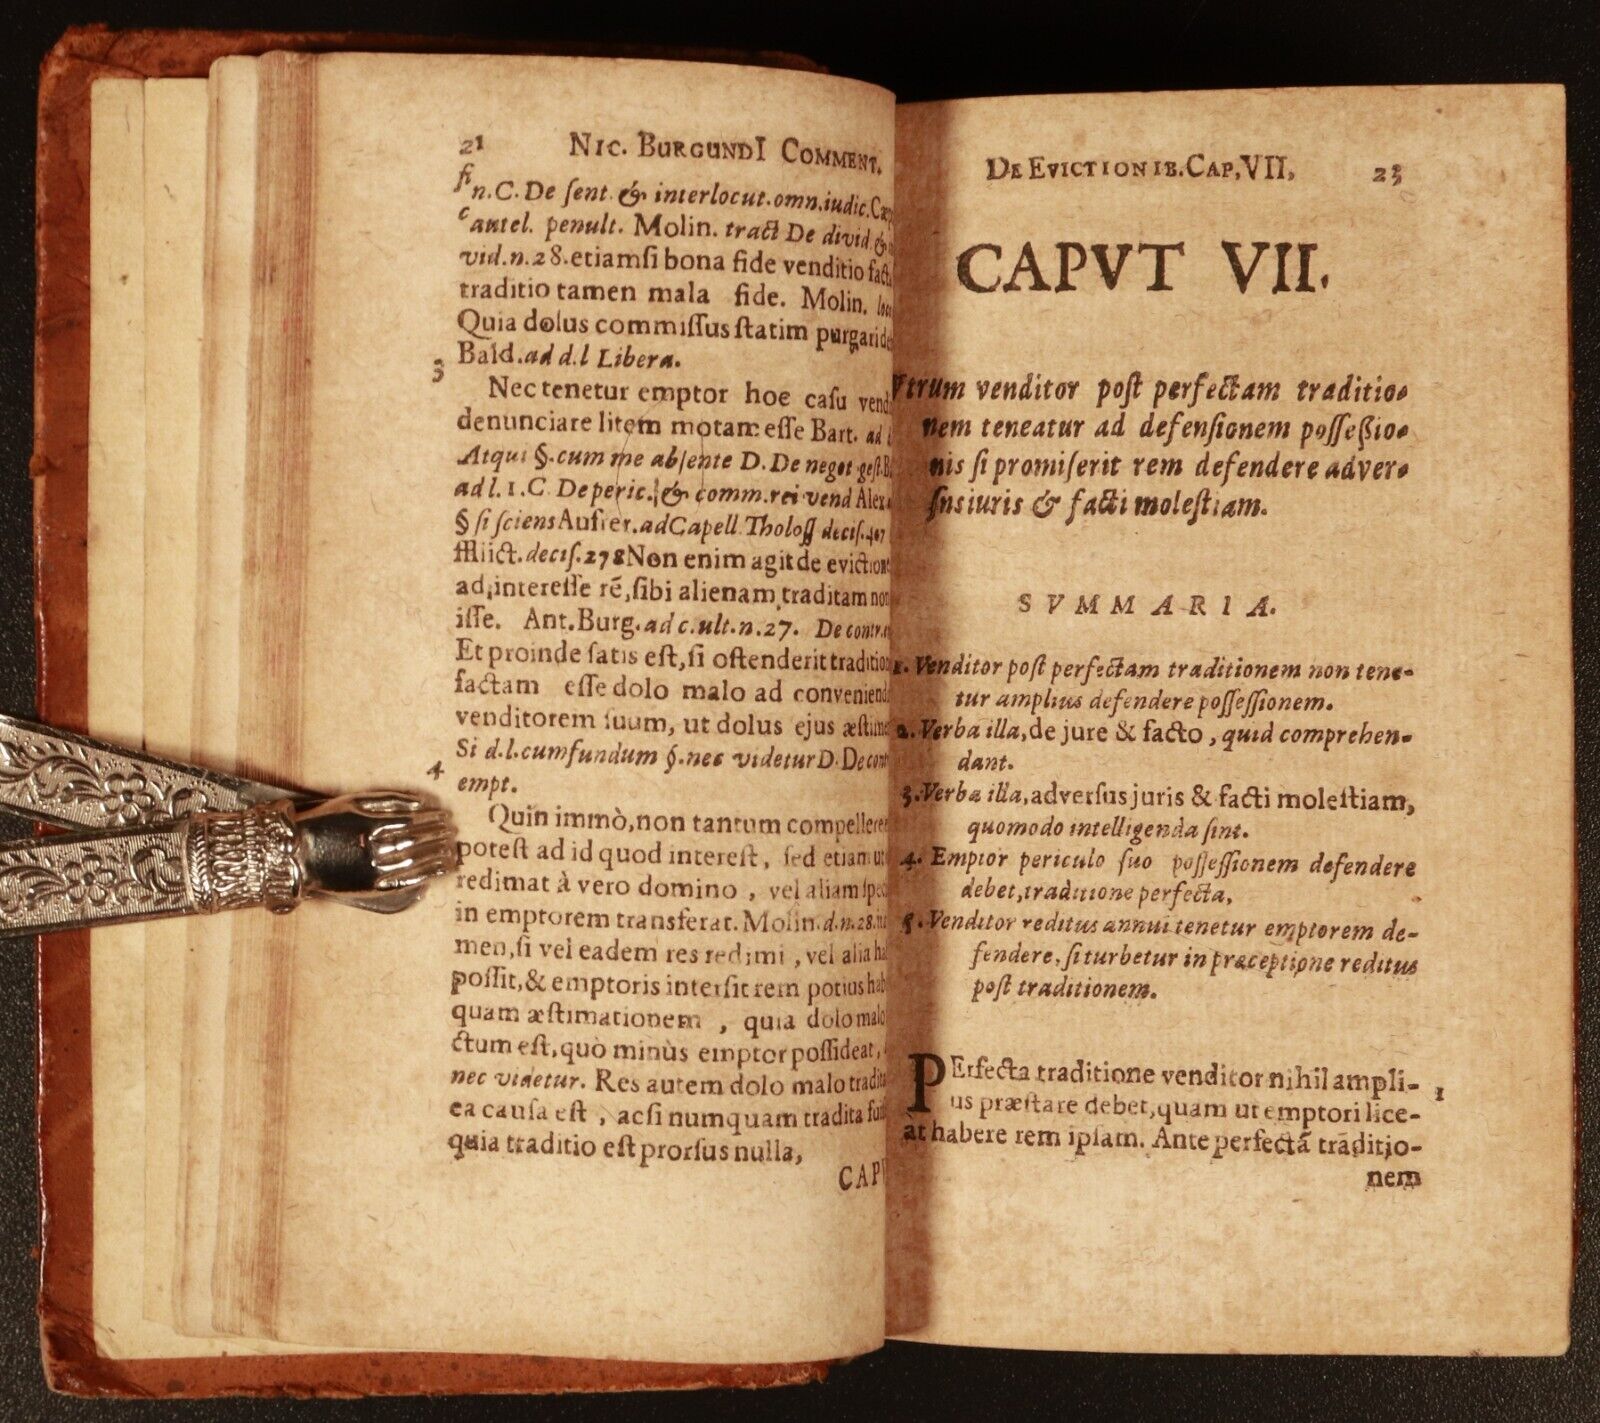 21 NIC. BURGUNDI COMMENT.
fi
n. C. De ſent. & interlocut. omn. iudic.
cautel. penult. Molin. tract De divid. &
vid. n. 28. etiamſi bona fide venditio
traditio tamen mala fide. Molin.
Quia dolus commiſſus ſtatim purgari
Bald. ad d. l Libera.
3
Nec tenetur emptor hoe caſu
denunciare litem motam eſſe Bart. ad
Atqui §. cum me abſente D. De negot geſt.
ad l. 1. C De peric. & comm. rei vend Alex
§ ſi ſciens Aufrer. ad Capell Tholoſſ deciſ. 407
deciſ. 278 Non enim agit de
ad, intereſſe rē, ſibi alienam traditam non
iſſe. Ant. Burg. ad c. ult. n. 27. De
Et proinde ſatis eſt, ſi oſtenderit
factam eſſe dolo malo ad
venditorem ſuum, ut dolus ejus
Si d. l. cum fundum §. nec videtur D. De
4
empt.
Quin immò, non tantum
poteſt ad id quod intereſt, ſed etiam ut
redimat à vero domino, vel aliam
in emptorem transferat. Molin. d. n. 28.
men, ſi vel eadem res redimi, vel alia
poſſit, & emptoris interſit rem potius
quam æſtimationem, quia dolo malo
ctum eſt, quò minùs emptor poſſideat,
nec videtur. Res autem dolo malo
ea cauſa eſt, acſi numquam tradita
quia traditio eſt prorſus nulla,
CAPV
DE EVICTIONIB. CAP, VII, 23
CAPVT VII.
Vtrum venditor poſt perfectam traditio-
nem teneatur ad defenſionem poſſeßio-
nis ſi promiſerit rem defendere adver-
ſus iuris & facti moleſtiam.
SVMMARIA.
1. Venditor poſt perfectam traditionem non tene-
tur amplius defendere poſſeſſionem.
2. Verba illa, de jure & facto, quid comprehen-
dant.
3. Verba illa, adverſus juris & facti moleſtiam,
quomodo intelligenda ſint.
4. Emptor periculo ſuo poſſeſſionem defendere
debet, traditione perfecta,
5. Venditor reditus annui tenetur emptorem de-
fendere, ſi turbetur in præceptione reditus
poſt traditionem.
PErfecta traditione venditor nihil ampli- 1
us præſtare debet, quam ut emptori lice-
at habere rem ipſam. Ante perfectā traditio-
nem